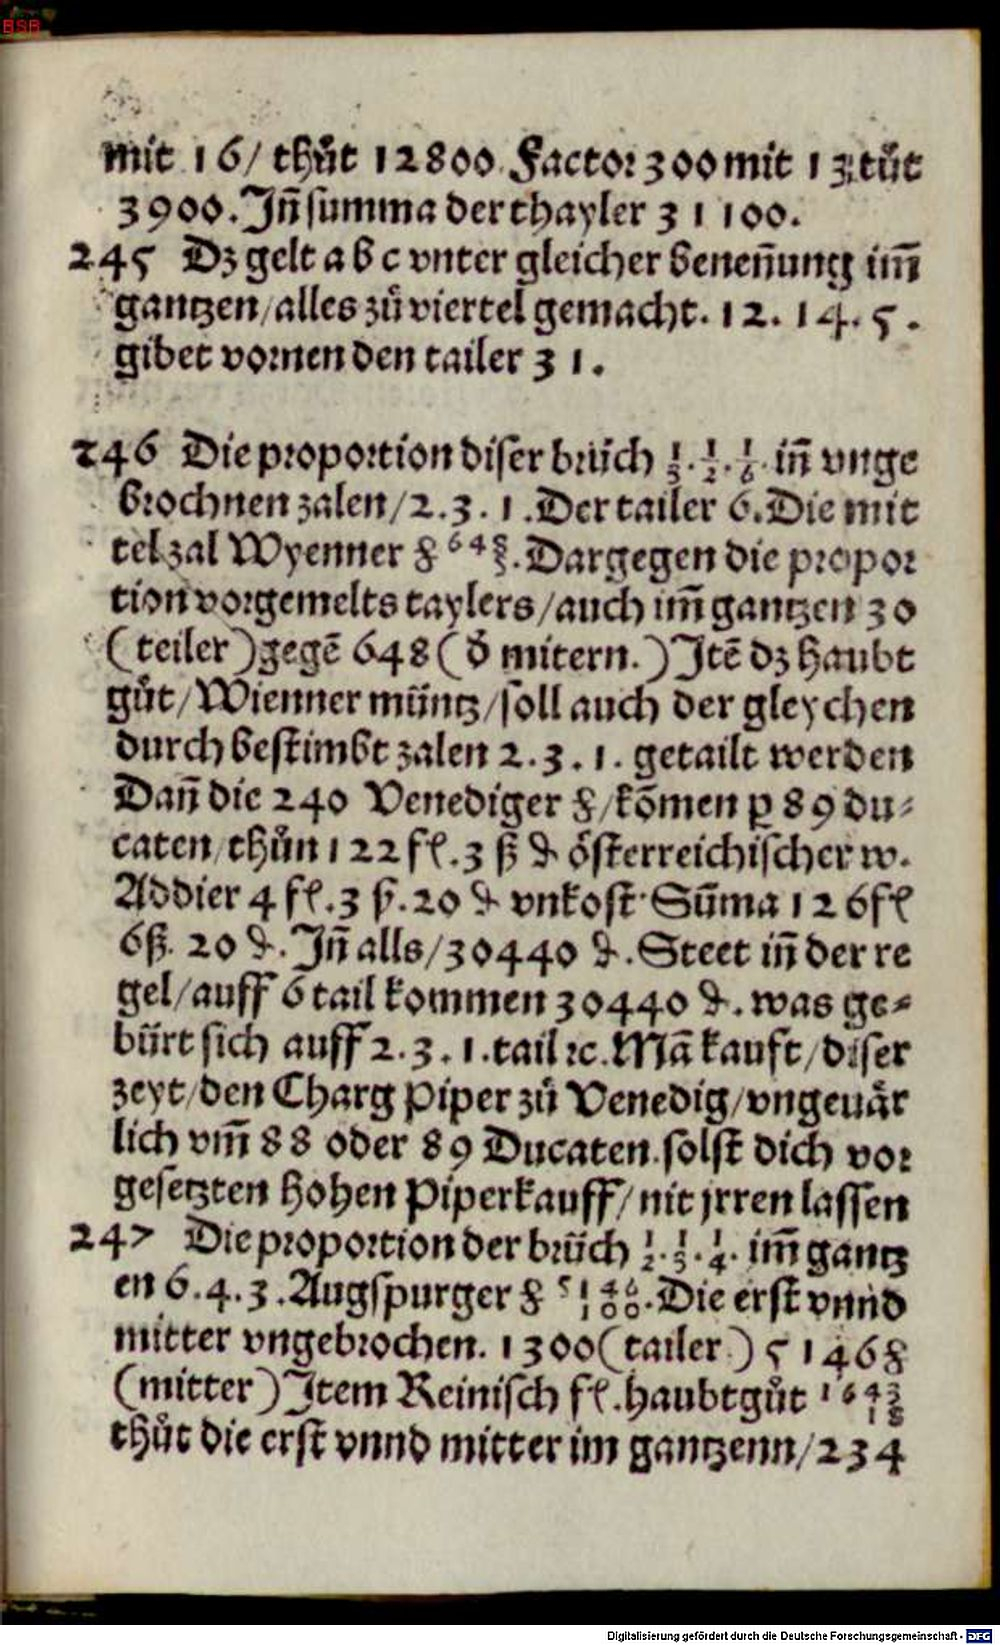 BSB
mit 16/ thůt 12800. Factor 300 mit 13. tůt
3900. Jñ summa der thayler 31100.
245 Dz gelt a b c vnter gleicher beneñung im̃
gantzen/alles zů viertel gemacht. 12. 14. 5.
gibet vornen den tailer 31.
246 Die proportion diser brüch 1/3. 1/2. 1/6. iñ vnge
brochnen zalen/2.3.1. Der tailer 6. Die mit
tel zal Wyenner 64 8/5. Dargegen die propor
tion vorgemelts taylers/auch im̃ gantzen 30
(teiler) gegē 648 (d̄ mitern.) Jtē dz haubt
gůt/Wienner müntz/soll auch der gleychen
durch bestimbt zalen 2.3.1. getailt werden
Dañ die 240 Venediger ₰/kōmen p 89 du⸗
caten/thůn 122 fl. 3 ß ₰ österreichischer w.
Addier 4 fl. 3 ß. 20 ₰ vnkost Sūma 126 fl
6 ß. 20 ₰. Jñ alls/30440 ₰. Steet iñ der re
gel/auff 6 tail kommen 30440 ₰. was ge⸗
bürt sich auff 2.3.1. tail ⁊c. Mā kauft/diser
zeyt/den Charg Piper zů Venedig/vngeuär
lich vm̃ 88 oder 89 Ducaten. solst dich vor
gesetzten hohen Piperkauff/nit jrren lassen
247 Die proportion der brüch 1/2. 1/3. 1/4. im̃ gantz
en 6.4.3. Augspurger 51 46/100. Die erst vnnd
mitter vngebrochen. 1300 (tailer.) 5146
(mitter) Jtem Reinisch fl. haubtgůt 164 3/18
thůt die erst vnnd mitter im gantzenn/234
Digitalisierung gefördert durch die Deutsche Forschungsgemeinschaft - DFG